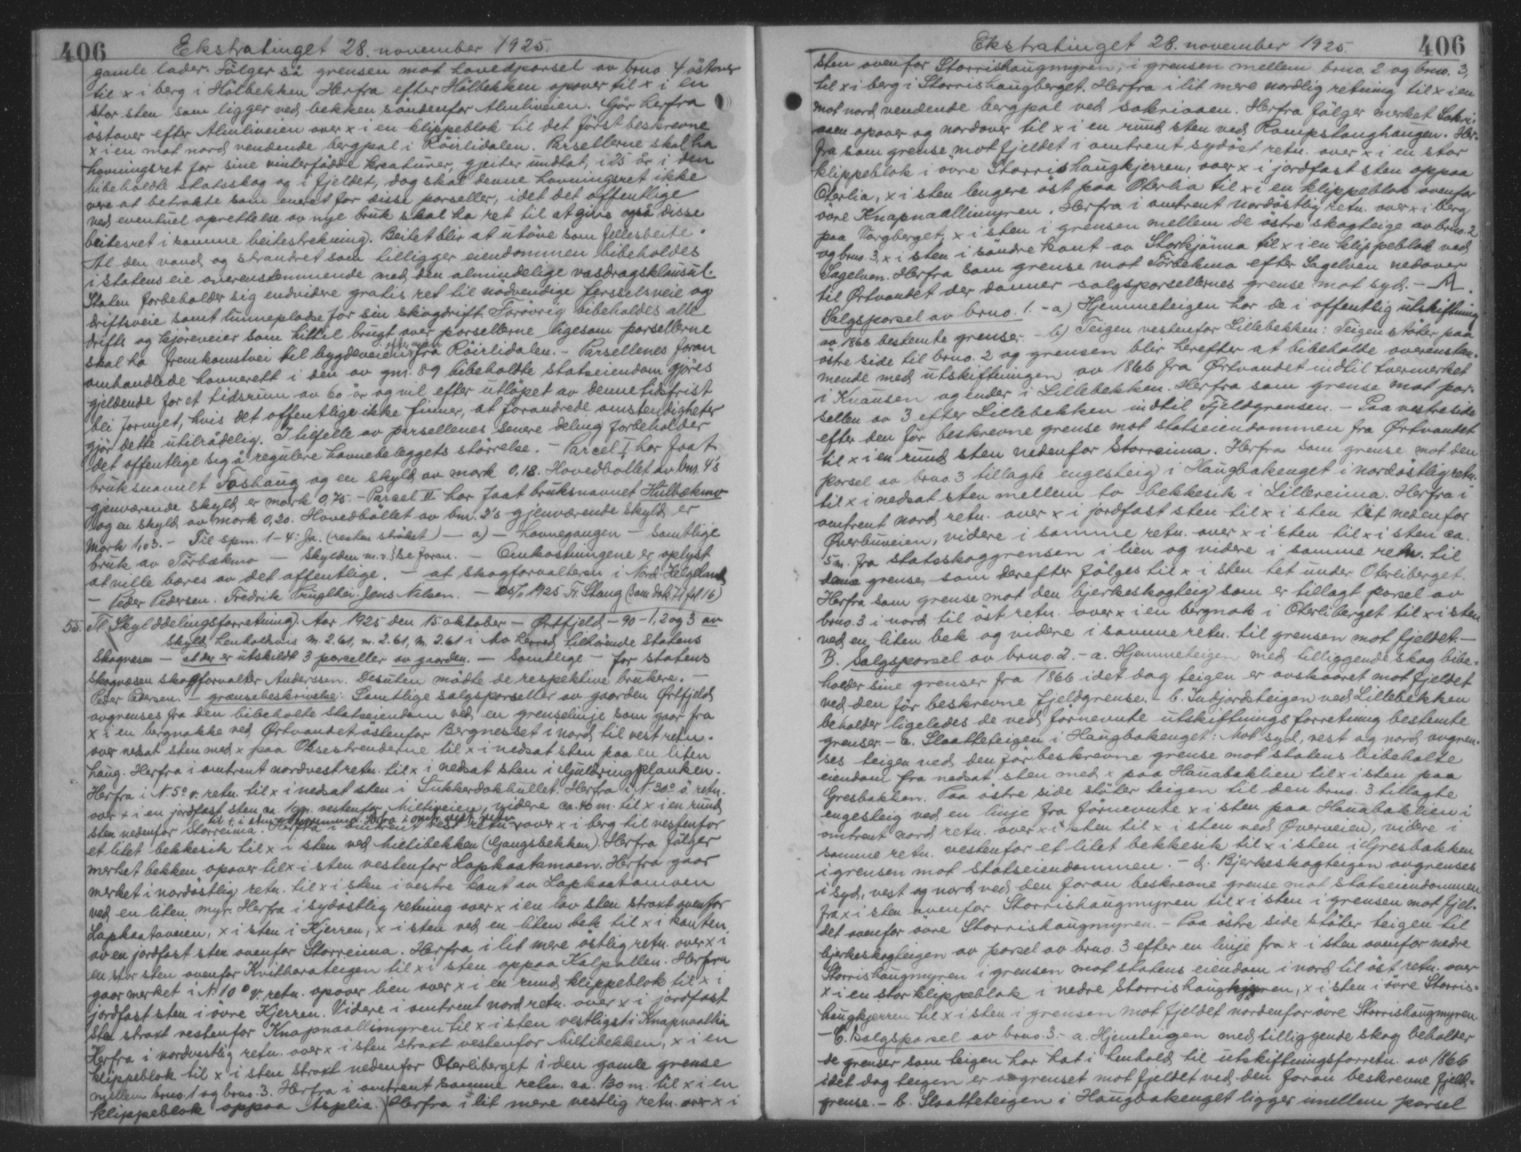 406
Ekstratinget 28. november 1925.
gamle lader. Følger så grensen mot hovedparsel av brno. 4 östover
til x i berg i Hölbekken. Herfra efter Hölbekken opover til x i en
stor sten som ligger ved bekken söndenfor Almliveien. Går herfra
östover efter Almliveien over x i en klippeblok til det först beskrevne
x i en mot nord vendende bergpal i Röirlidalen. Parsellerne skal ha
havningsret for sine vinterfödde kreaturer, gjeiter undtat, i 25 år i den
bibeholdte statsskog og i fjeldet, dog skal denne havningsret ikke
være at betrakte som eneret for disse parseller, idet det offentlige
ved eventuel oprettelse av nye bruk skal ha ret til at give også disse
beitesret i samme beitestrekning. Beitet blir at utöve som fellesbeite.
Al den vand og strandret som tilligger eiendommen bibeholdes
i statens eie overensstemmende med den almindelige vasdragsklausul.
Staten forbeholder sig endvidere gratis ret til nödvendige ferselsveie og
driftsveie samt tunneplasse for sin skogdrift. Forövrig bibeholdes alle
drifts og kjöreveier som hittil brugt over parsellerne ligesom parsellerne
skal ha fremkomstvei til bygdeveien fra Röirlidalen. - Parsellenes foran
omhandlede havnerett i den av gnr. 89 bibeholdte statseiendom gjöres
gjeldende for et tidsrum av 60 år og vil efter utlöpet av denne tidsfrist
bli fornyet, hvis det offentlige ikke finner, at forandrede omstendigheter
gjör dette utilrådelig. I tilfelle av parsellenes senere deling forbeholder
det offentlige sig å regulere havnebeleggets störrelse. - Parcel I har faat
bruksnavnet Foshaug og en skyld av mark 0,18. Hovedbøllet av bnr. 4's
gjenværende skyld er mark 0,75. - Parcel II har faat bruksnavnet Hulbækmo
og en skyld av mark 0,20. Hovedböllet av bnr. 2's gjenværende skyld er
mark 1,03. - Til spm. 1-4: Ja. (resten ströket) - a) - havnegangen - samtlige
bruk av Förbækmo - Skylden m.v. Se foran. - Omkostningene er oplyst
at ville bæres av det offentlige. - at skogforvalteren i Nord Helgeland
- Peder Pedersen. Fredrik Jens Nilsen. - 25/11 1925 Fr. Stang
55. Skylddelingsforretning. Aar 1925 den 15 oktober - Ørtfjeld - 90 - 1, 2 og 3 av
skyld henholdsvis m. 2.61, m. 2.61, m. 2.61 i Mo herred tilhörende Statens
Skogvesen - at der er utskildt 3 parseller av gaarden. - Samtlige - for statens
skogvesen skogforvalter Anderssen. Desuten mödte de respektive brukere. -
Peder Pedersen. - grænsebeskrivelse: Samtlige salgsparseller av gaarden Ørtfjeld
avgrenses fra den bibeholdte statseiendom ved en grenselinje som gaar fra
x i en bergnakke ved Ørtvandet östenfor Bergneset i nord til vest retn.
over nedsat sten med x paa Oksestrenderne til x i nedsat sten paa en liten
haug. Herfra i omtrent nordvest retn. til x i nedsat sten i Gjuldringplanken.
Herfra i N 5° v. retn. til x i nedsat sten i Sukkerdokhullet. Herfra i N. 30° ö retn.
over x i en jordfast sten ca. 1 m. vestenfor Miltiveien, videre ca. 40 m. til x i en rund
sten nedenfor Storreinna. Herfra i omtrent vest retn. over x i berg til vestenfor
et litet bekkesik til x i sten ved Miltibekken (Gangsbekken). Herfra følger
merket bekken opover til x i sten vestenfor Lapkaatamoen. Herfra gaar
merket i nordöstlig retn. til x i sten i vestre kant av Lapkaatamoen
ved en liten myr. Herfra i sydöstlig retning over x i en lav sten straxt ovenfor
Lapkaataveien, x i sten i Kjerren, x i sten ved en liten bek til x i kanten
av en jordfast sten ovenfor Storreinna. Herfra i lit mere östlig retn. over x i
en stor sten ovenfor Kvitharateigen til x i sten oppaa Kalpallen. Herfra
gaar merket i N. 10° v. retn. opover lien over x i en rund klippeblok til x i
jordfast sten i övre Kjerren. Videre i omtrent nord retn. over x i jordfast
sten straxt vestenfor Knapnaallimyren til x i sten vestligst i Knapnaallia
Herfra i nordvestlig retn. over x i sten straxt vestenfor Miltibekken, x i en
klippeblok til x i sten straxt nedenfor Oterliberget i den gamle grense
mellem brno. 1 og brno. 3. Herfra i omtrent samme retn. ca. 130 m. til x i en
klippeblok oppaa Asplia. Herfra i lit mere vestlig retn. over x i
406
Ekstratinget 28. november 1925.
sten oven for Storrishaugmyren, i grensen mellem brno. 2 og brno. 3,
til x i berg i Storrishaugberget. Herfra i lit mere nordlig retning til x i en
mot nord vendende bergpal ved sakriaaen. Herfra følger merket Sakri-
aaen opover og nordover til x i en rund sten ved Rompstanghaugen. Her-
fra som grense mot fjeldet i omtrent sydöst retn. over x i en stor
klippeblok i övre Storrishaugkjerren, over x i jordfast sten oppaa
Oterlia, x i sten lengere öst paa Oterlia til x i en klippeblok ovenfor
övre Knapnaallimyren. Herfra i omtrent nordöstlig retn. over x i berg
paa Vargberget, x i sten i grensen mellem de östre skogteige av brno. 2
og brno. 3, x i sten i söndre kant av Storkjönna til x i en klippeblok ved
Sagelven. Herfra som grense mot Förbekmo efter Sagelven nedover
til Ørtvandet der danner salgsparsellernes grense mot syd. - A.
Salgsparsel av brno. 1. - a) Hjemmeteigen har de i offentlig utskiftning
av 1866 bestemte grenser - b) Teigen vestenfor Lillebekken: Teigen stöter paa
östre side til brno. 2 og grensen blir herefter at bibeholde overenstem-
mende med utskiftningen av 1866 fra Ørtvandet indtil tvermerket
i Knausen og ender i Lillebekken. Herfra som grense mot par-
sellen av 3 efter Lillebekken indtil Fjeldgrensen. - Paa vestre side
efter den för beskrevne grense mot statseiendommen fra Ørtvandet
til x i en rund sten nedenfor Storreinna. Herfra som grense mot den
porsel av brno. 3 tillagte englsteig i Haugbakenget i nordöstlig retn.
til x i nedsat sten mellem to bekkesik i Lillereinna. Herfra i
omtrent nord retn. over x i jordfast sten til x i sten tæt nedenfor
Øverbuveien, videre i samme retn. over x i sten til x i sten ca.
5 m. fra statsskoggrensen i lien og videre i samme retn. til
denne grense, som derefter følges til x i sten tet under Oterliberget.
Herfra som grense mot den bjerkeskogteig som er tillagt porsel av
brno. 3 i nord til öst retn. over x i en bergnak i Oterliberget til x i sten
ved en liten bek og videre i samme retn. til grensen mot fjeldet. -
B. Salgsporsel av brno. 2. - a. Hjemmeteigen med tilliggende skog bibe-
holder sine grenser fra 1866 idet dog teigen er avskaaret mot fjeldet
ved den för beskrevne fjeldgrense. - b. Indjordsteigen ved Lillebekken
beholder ligeledes de ved förnevnte utskiftningsforretning bestemte
grenser. - c. Slaatteteigen i Haugbakenget: Mot syd, vest og nord avgren-
ses teigen ved den för beskrevne grense mot statens bibeholdte
eiendom fra nedsat sten med x paa Hanabaklien til x i sten paa
Gresbakken. Paa östre side stöter teigen til den brno. 3 tillagte
engesteig ved en linje fra förnevnte x i sten paa Hanabaklien i
omtrent nord retn. over x i sten til x i sten ved Øverveien, videre i
samme retn. vestenfor et litet bekkesik til x i sten i Gresbakken
i grensen mot statseiendommen - d. Bjerkeskogteigen avgrenses
i syd, vest og nord ved den foran beskrevne grense mot statseiendommen
fra x i sten ovenfor Storrishaugmyren til x i sten i grensen mot fjel-
det ovenfor övre Storrishaugmyren. - Paa östre side stöter teigen til
bjerkeskogteigen av porsel av brno. 3 efter en linje fra x i sten ovenfor nedre
Storrishaugmyren i grensen mot statens eiendom i nord til öst retn. over
x i en stor klippeblok i nedre Storrishaugmyren, x i sten i övre Storris-
haugkjerren til x i sten i grensen mot fjeldet nordenfor övre Storrishaugmyren
- C. Salgsporsel av brno. 3. - a. Hjemteigen med tilliggende skog beholder
de grenser som teigen har hat i henhold til utskiftningsforretn. av 1866
idet dog teigen er avgrenset mot fjeldet ved den foran beskrevne fjeld-
grense. - b. Slaatteteigen i Haugbakenget ligger mellem porsel